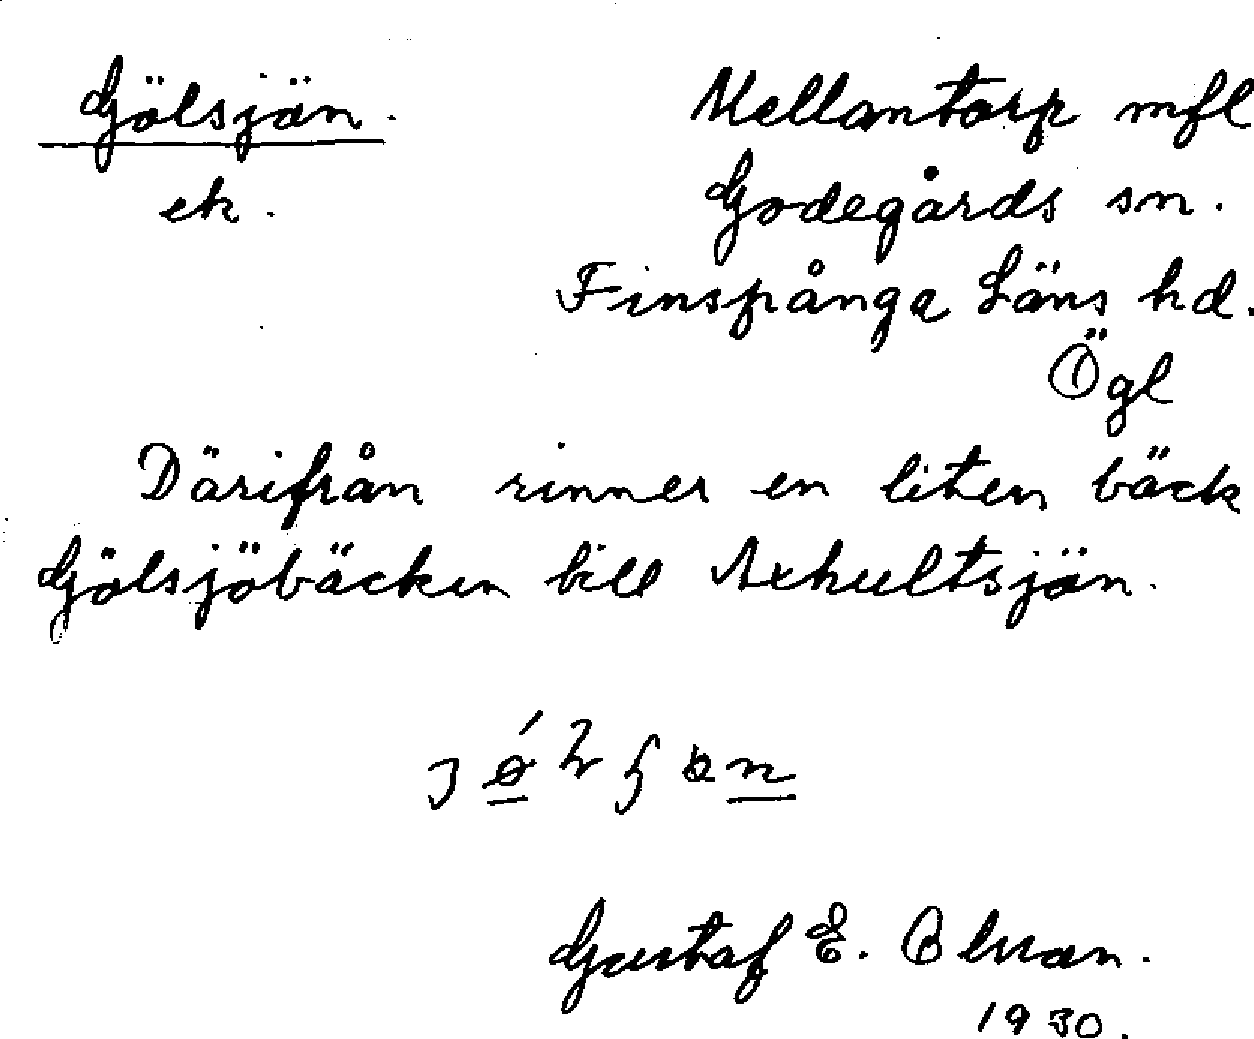 Gölsjön.
ek.
Mellantorp mfl
Godegårds sn.
Finspånga Läns hd.
Ögl
Därifrån rinner en liten bäck
Gölsjöbäcken till Axhultsjön.
Gustaf E. Olsson.
1930.